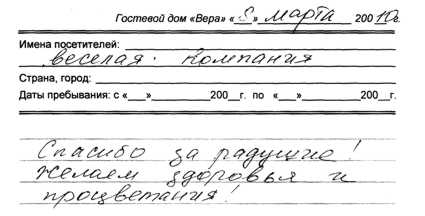 Гостевой дом «Вера» «8» марта 200 10 г.
Имена посетителей:
веселая компания
Страна, город:
Даты пребывания: с «__» ______ 200__г. по «__» ______ 200__г.
Спасибо за радушие!
Желаем здоровья и
процветания!